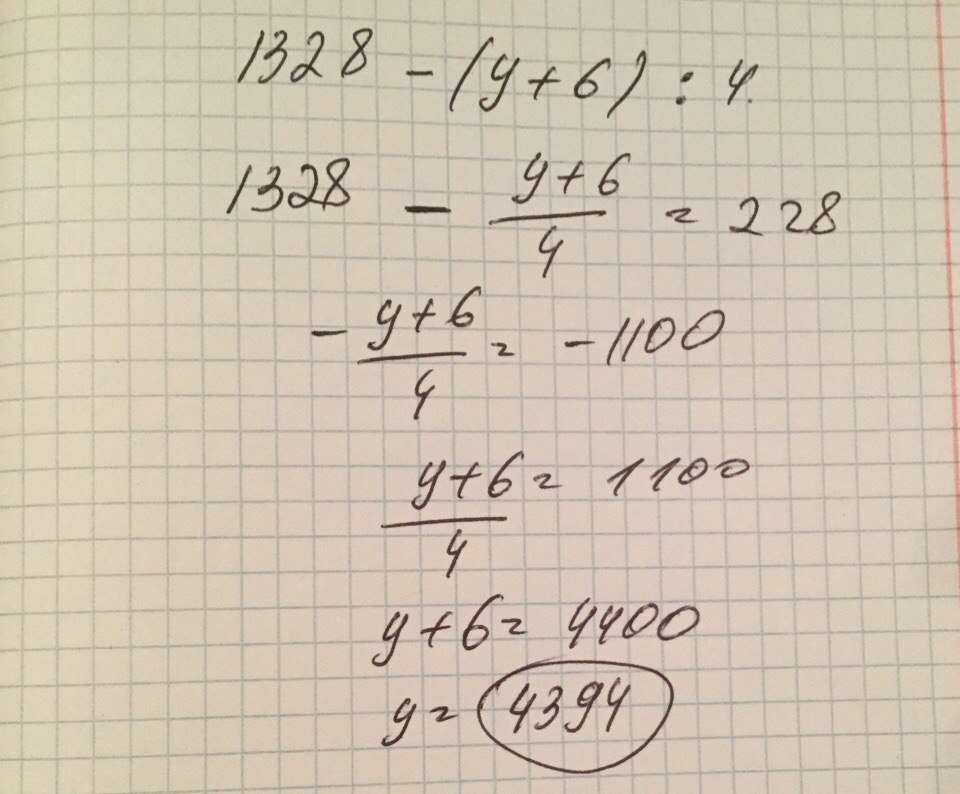 1328 - (y+6) : 4.
1328 - (y+6)/4 = 228
- (y+6)/4 = -1100
(y+6)/4 = 1100
y+6 = 4400
y = 4394